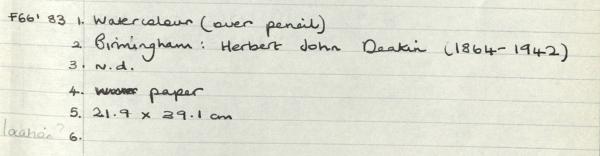 F66' 83 1. Watercolour (over pencil)
2 Birmingham: Herbert John Deakin (1864-1942)
3. N.d.
4. paper
5. 21.9 x 39.1 cm
location? 6.